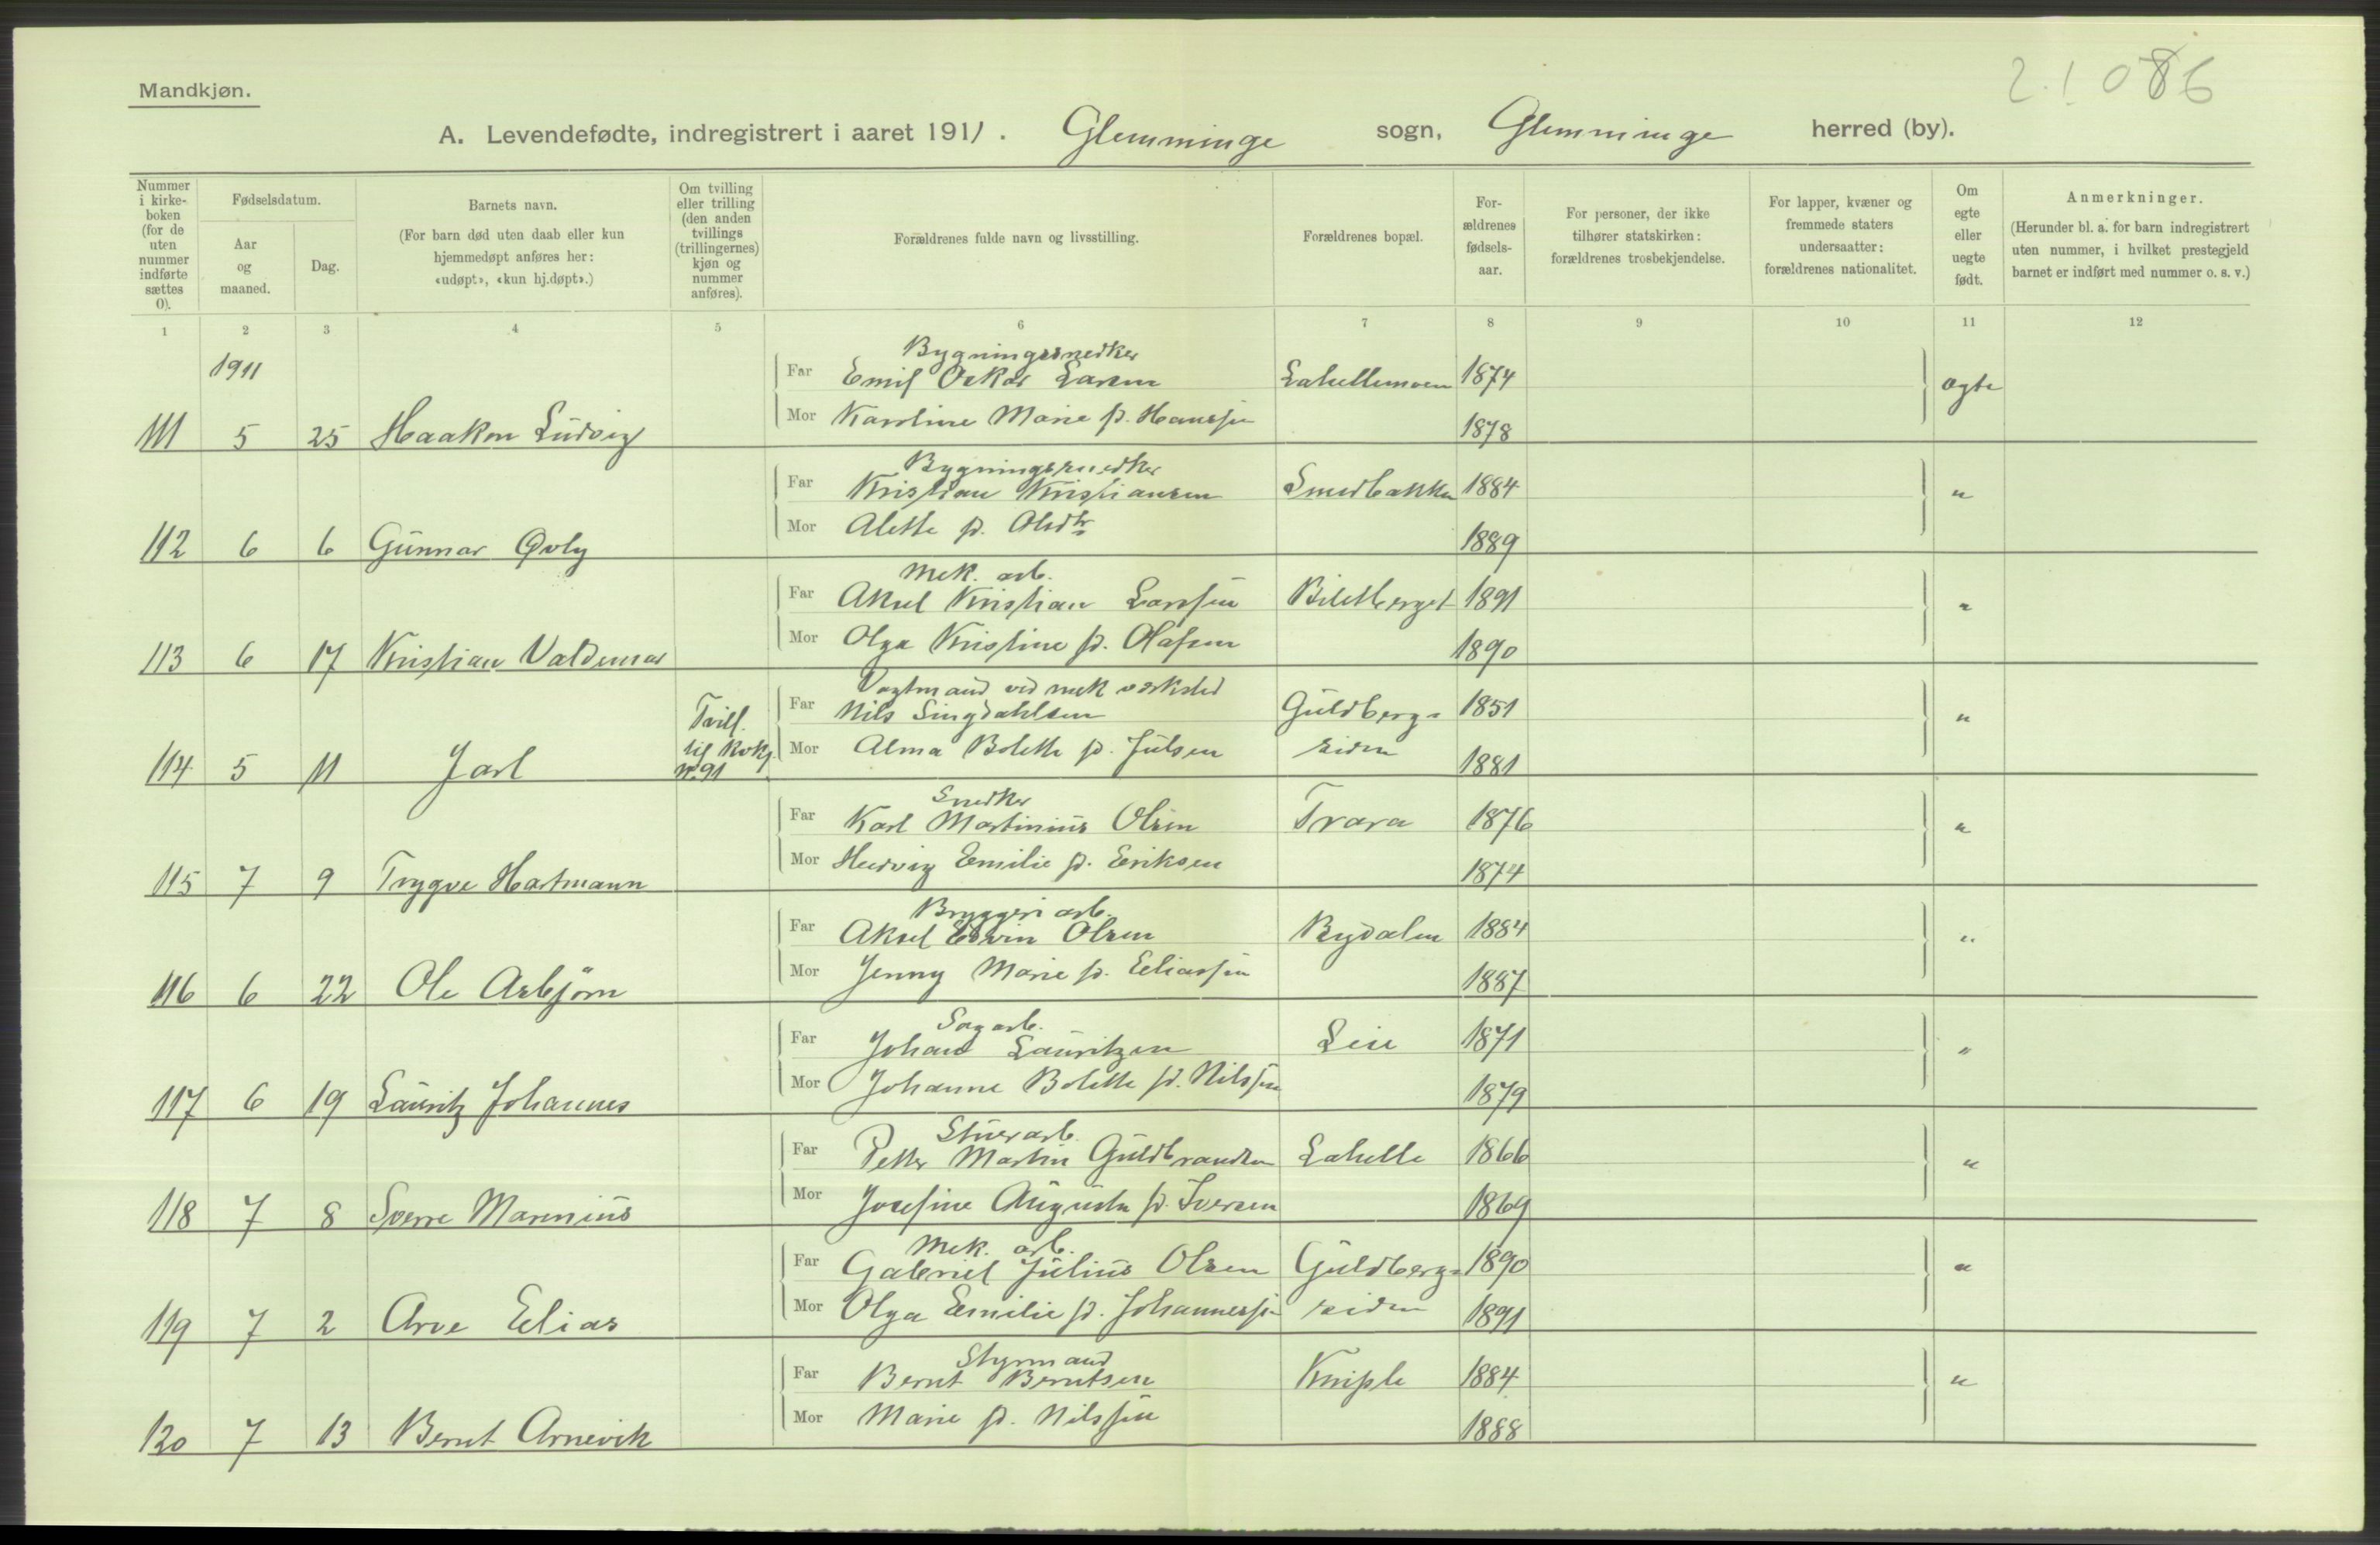 2.1 086
Mandkjøn.
A. Levendefødte, indregistrert i aaret 1911. Glemminge sogn, Glemminge herred (by).
Nummer i kirkeboken (for de uten nummer indførte sættes 0).
Fødselsdatum.
Aar og maaned.
Dag.
Barnets navn.
(For barn død uten daab eller kun hjemmedøpt anføres her: «udøpt», «kun hj.døpt».)
Om tvilling eller trilling (den anden tvillings (trillingernes) kjøn og nummer anføres).
Forældrenes fulde navn og livsstilling.
Forældrenes bopæl.
For-ældrenes fødsels-aar.
For personer, der ikke tilhører statskirken: forældrenes trosbekjendelse.
For lapper, kvæner og fremmede staters undersaatter: forældrenes nationalitet.
Om egte eller uegte født.
Anmerkninger.
(Herunder bl. a. for barn indregistrert uten nummer, i hvilket prestegjeld barnet er indført med nummer o. s. v.)
1 2 3 4 5 6 7 8 9 10 11 12
1911
Bygningssnedker
Far Emil Oskar Larsen Lahellemoen 1874 ægte
Mor Karoline Marie f. Hanssen 1878
111 5 25 Haakon Ludvig
Bygningssnedker
Far Kristian Kristiansen Smedbakken 1884 "
Mor Alette f. Olsdtr 1889
112 6 6 Gunnar Øvly
Mek. arb.
Far Aksel Kristian Larssen Biletberget 1891 "
Mor Olga Kristine f. Olafsen 1890
113 6 17 Kristian Valdemar
Vagtmand ved mek verksted
Far Nils Singdahlsen Guldbergs- 1851 "
Mor Alma Bolette f. Julsen siden 1881
114 5 11 Jarl Tvill. til Kvkj. nr. 91
Snedker
Far Karl Martinius Olsen Trara 1876 "
Mor Hedvig Emilie f. Eriksen 1874
115 7 9 Trygve Hartmann
Bryggeri arb.
Far Aksel Edvin Olsen Bydalen 1884 "
Mor Jenny Marie f. Eliassen 1887
116 6 22 Ole Asbjørn
Sagarb.
Far Johan Lauritzen Leie 1871 "
Mor Johanne Bolette f. Nilssen 1879
117 6 19 Lauritz Johannes
Stuerarb.
Far Petter Martin Guldbrandsen Lahelle 1866 "
Mor Josefine Augusta f. Iversen 1869
118 7 8 Sverre Marenius
Mek. arb.
Far Gabriel Julius Olsen Guldbergs- 1890 "
Mor Olga Emilie f. Johannessen siden 1891
119 7 2 Arve Elias
Styrmand
Far Bernt Berntsen Kniple 1884 "
Mor Marie f. Nilssen 1888
120 7 13 Bernt Arnevik